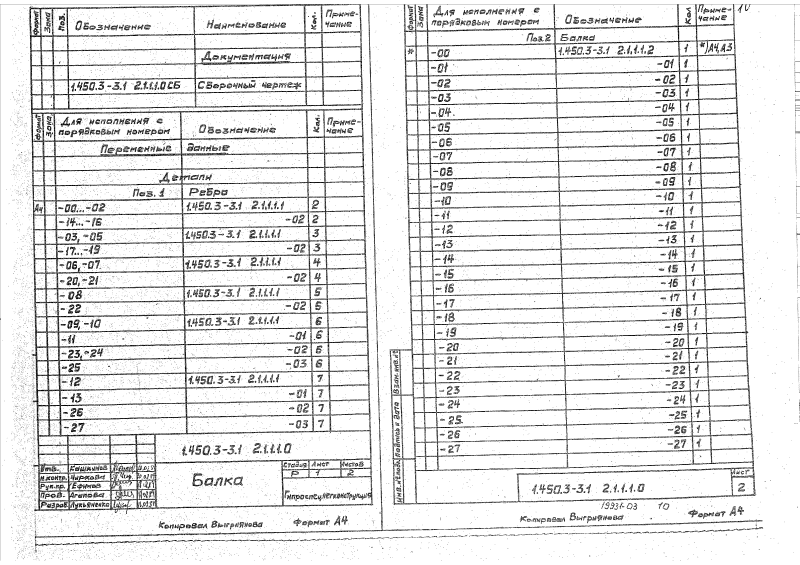 Формат Зона Поз. Обозначение Наименование Кол. Приме-
чание
Документация
1.450.3-3.1 2.1.1.1.0СБ Сборочный чертеж
Формат Зона Для исполнения с
порядковым номером Обозначение Кол. Приме-
чание
Переменные данные
Детали
Поз. 1 Ребро
А4 -00...-02 1.450.3-3.1 2.1.1.1.1 2
-14...-16 -02 2
-03, -05 1.450.3-3.1 2.1.1.1.1 3
-17...-19 -02 3
-06, -07 1.450.3-3.1 2.1.1.1.1 4
-20, -21 -02 4
-08 1.450.3-3.1 2.1.1.1.1 5
-22 -02 5
-09, -10 1.450.3-3.1 2.1.1.1.1 6
-11 -01 6
-23, -24 -02 6
-25 -03 6
-12 1.450.3-3.1 2.1.1.1.1 7
-13 -01 7
-26 -02 7
-27 -03 7
1.450.3-3.1 2.1.1.1.0
Утв. Кашкинов
Н.контр. Чиркова
Рук.пр. Ефимов
Пров. Агапова
Разраб. Лукьяненко
Балка
Стадия Лист Листов
Р 1 2
Копировал Выгриянова Формат А4
10
Формат Зона Для исполнения с
порядковым номером Обозначение Кол Приме-
чание
Поз.2 Балка
* -00 1.450.3-3.1 2.1.1.1.2 1 *) А4, А3
-01 -01 1
-02 -02 1
-03 -03 1
-04 -04 1
-05 -05 1
-06 -06 1
-07 -07 1
-08 -08 1
-09 -09 1
-10 -10 1
-11 -11 1
-12 -12 1
-13 -13 1
-14 -14 1
-15 -15 1
-16 -16 1
-17 -17 1
-18 -18 1
-19 -19 1
-20 -20 1
-21 -21 1
-22 -22 1
-23 -23 1
-24 -24 1
-25 -25 1
-26 -26 1
-27 -27 1
Взам.инв.№
Подпись и дата
Инв.№подл.
1.450.3-3.1 2.1.1.1.0
Лист
2
19931-03 10
Копировал Выгриянова Формат А4